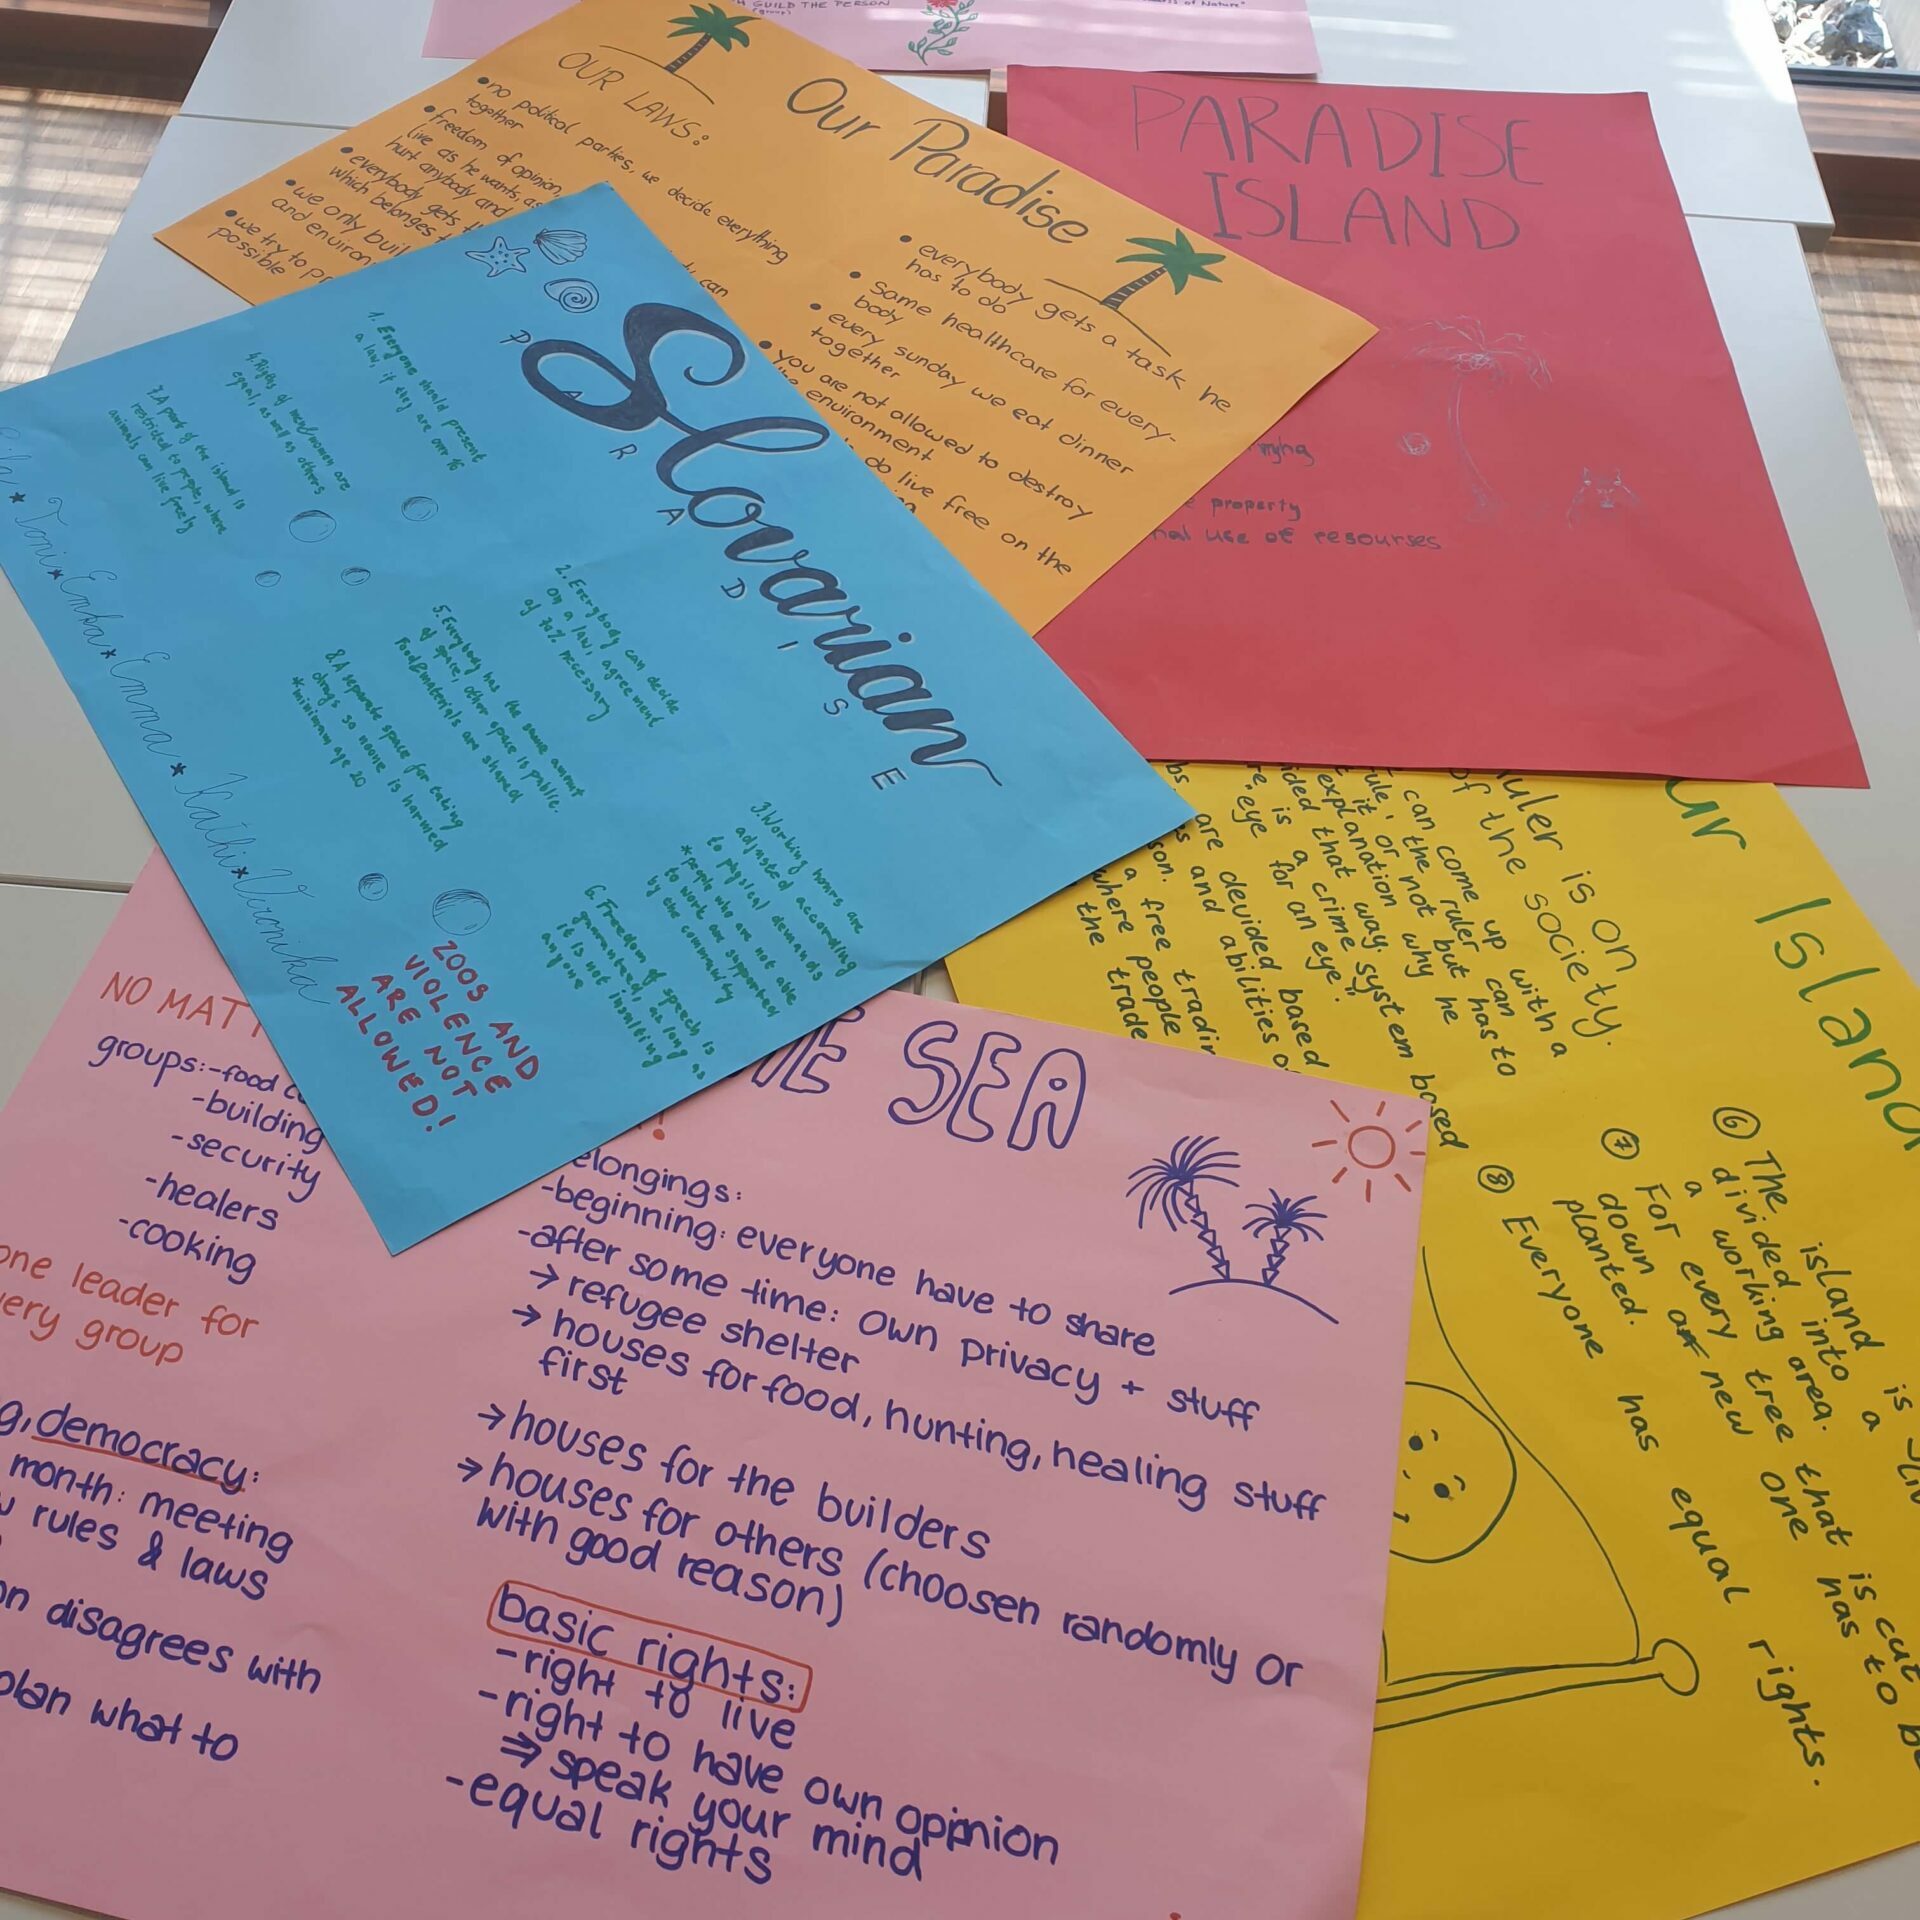 GUILD THE PERSON
(group)
of Nature"
OUR LAWS:
• no political parties, we decide everything
together
• freedom of opinion,
live as he wants, as
hurt anybody and
can
• everybody gets
which belonges
• we only buil
and environ
• we try to pr
possible
Our Paradise
• everybody gets a task he
has to do
• Same healthcare for every-
body
• every sunday we eat dinner
together
• you are not allowed to destroy
environment
do live free on the
PARADISE
ISLAND
property
use of resourses
Slovarian
PARADISE
1. Everyone should present
a law, if they are over 16
2. Everybody can decide
on a law, agreement
of 70% necessary
3. Working hours are
adjusted according
to physical demands
*people who are not able
to work are supported
by the community
4. Rights of men/women are
equal, as well as others
5. Everybody has the same amount
of space, other space is public.
Food & materials are shared
6. Freedom of speech is
guaranteed, as long as
it is not insulting
anyone
7. A part of the island is
restricted to people, where
animals can live freely
8. A separate space for taking
drugs so noone is harmed
*minimum age 20
ZOOS AND
VIOLENCE
ARE NOT
ALLOWED!
Toni * Emka * Emma * Kathi * Veronika
ur Island
ruler is on
of the society.
can come up with a
rule, the ruler can
it or not but has to
explanation why he
ided that way.
is a crime system based
eye for an eye".
are devided based
and abilities o
son.
a free tradin
where people
the trade
⑥ The island is
divided into a
a working area.
⑦ For every tree that is cut
down a new one has to be
planted.
⑧ Everyone has equal rights.
SEA
NO MATT
groups: -food
-building
-security
-healers
-cooking
one leader for
very group
democracy:
month: meeting
rules & laws
on disagrees with
plan what to
elongings:
-beginning: everyone have to share
-after some time: own privacy + stuff
→ refugee shelter
→ houses for food, hunting, healing stuff
first
→ houses for the builders
→ houses for others (choosen randomly or
with good reason)
basic rights:
-right to live
-right to have own oppinion
⇒ speak your mind
-equal rights